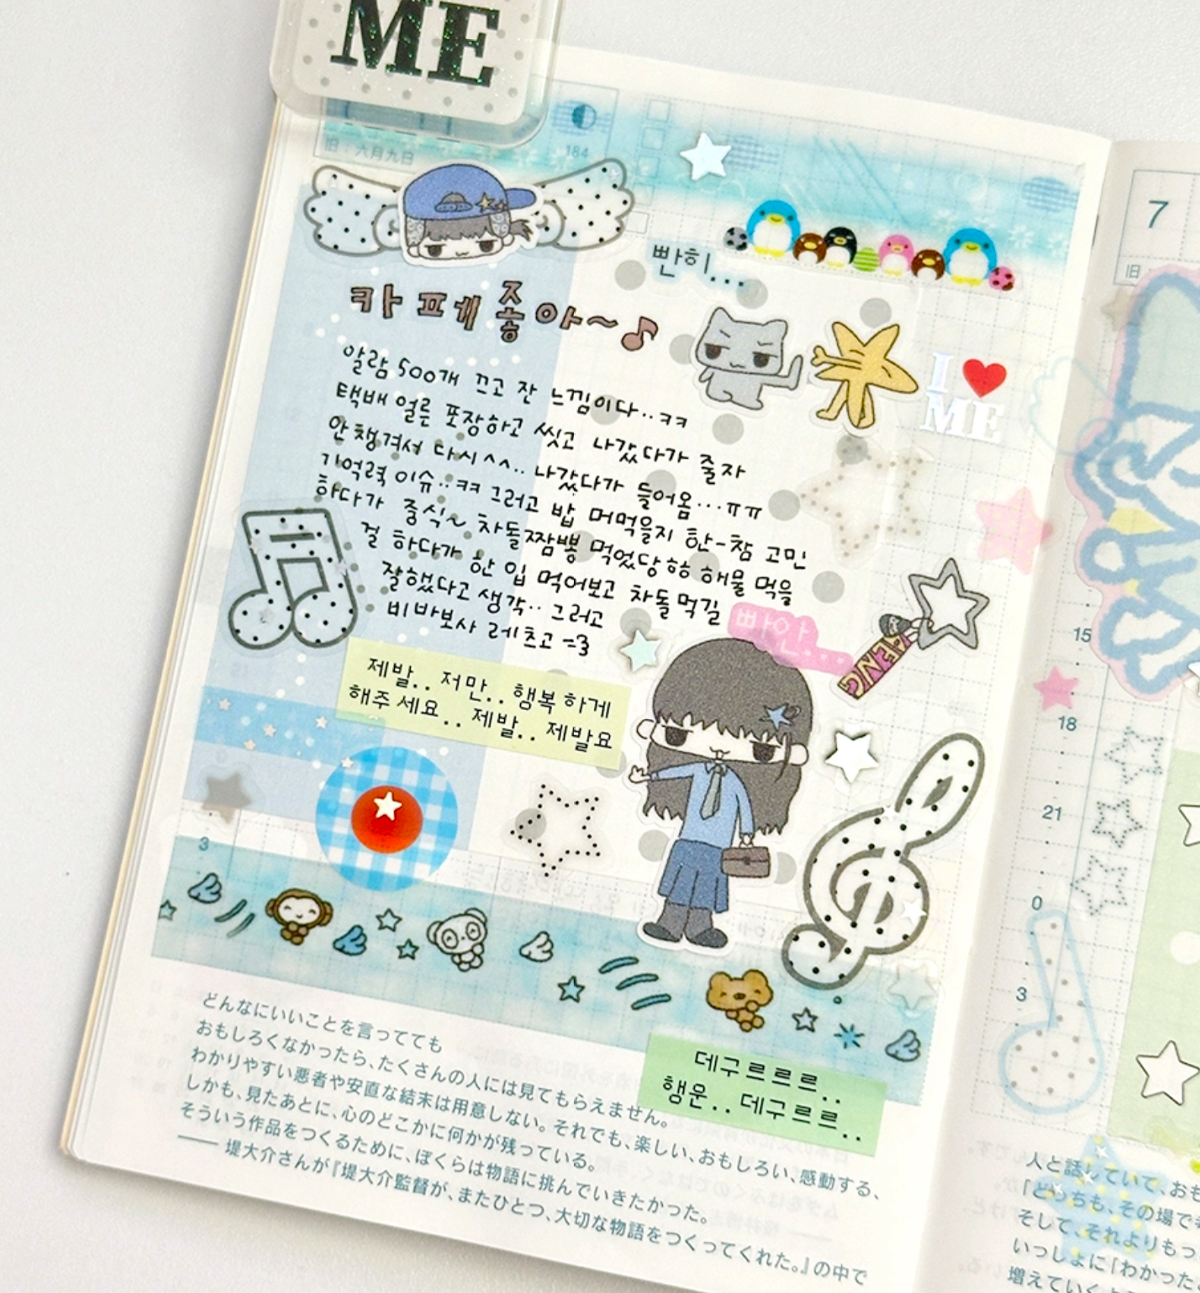 ME
旧・六月九日
184
빤히...
카페좋아~♪
I ♥
ME
알람 500개 끄고 잔 느낌이다..ㅋㅋ
택배 얼른 포장하고 씻고 나갔다가 줄자
안챙겨서 다시^^.. 나갔다가 들어옴...ㅠㅠ
기억력 이슈..ㅋㅋ 그러고 밥 머먹을지 한-참 고민
하다가 중식~ 차돌짬뽕 먹었당ㅎㅎ 해물 먹을
걸 하다가 한 입 먹어보고 차돌먹길
잘했다고 생각.. 그러고
비바보사 레츠고 =3
빠안...
PENG
제발.. 저만.. 행복하게
해주세요.. 제발.. 제발요
3
데구르르르..
행운.. 데구르르..
どんなにいいことを言ってても
おもしろくなかったら、たくさんの人には見てもらえません。
わかりやすい悪者や安直な結末は用意しない。それでも、楽しい、おもしろい、感動する、
しかも、見たあとに、心のどこかに何かが残っている。
そういう作品をつくるために、ぼくらは物語に挑んでいきたかった。
── 堤大介さんが『堤大介監督が、またひとつ、大切な物語をつくってくれた。』の中で
7
旧
15
18
21
0
3
人と話していて、おも
「どっちも、その場で
そして、それよりもっ
いっしょに「わかった
増えていく